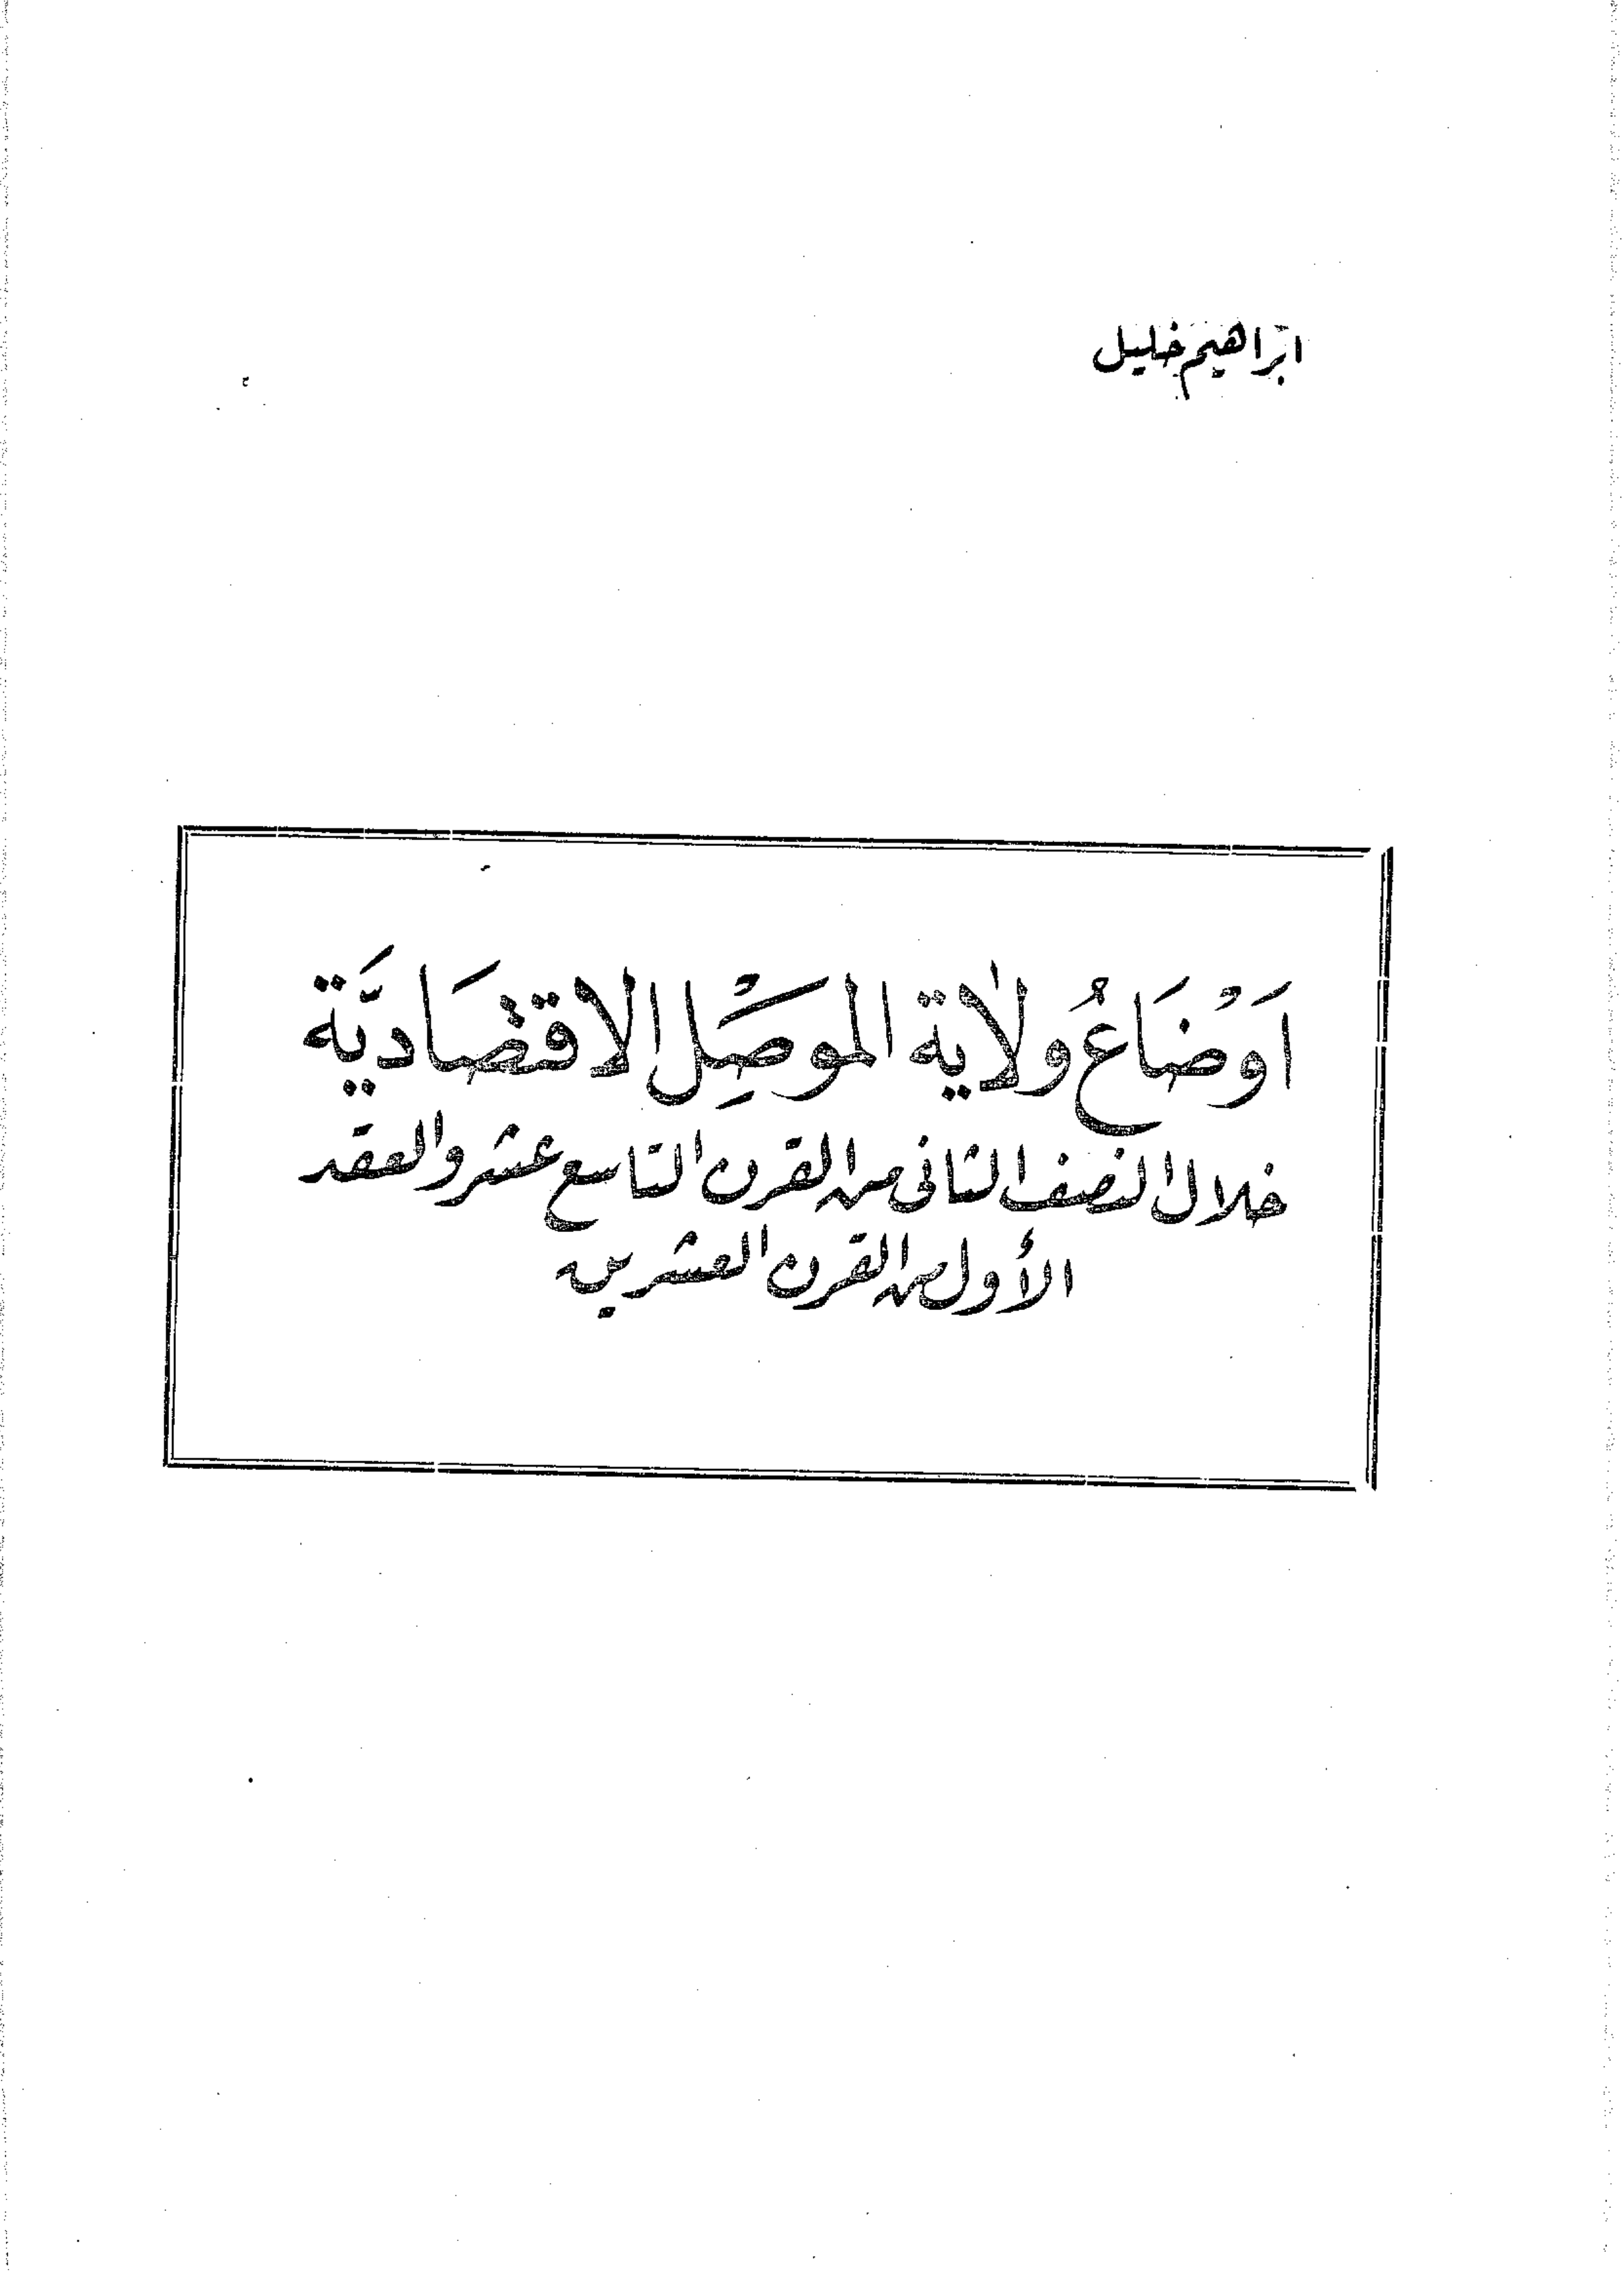 ابراهيم خليل
اَوْضَاعُ ولاية الموصِل الاقتصَاديَّة
خلال النصف الثاني من القرن التاسع عشر والعقد
الأول من القرن العشرين